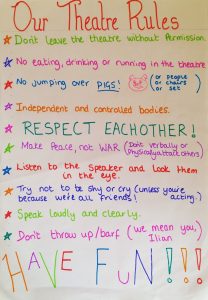 Our Theatre Rules
Don't leave the theatre without Permission.
No eating, drinking or running in the theatre
No Jumping over PIGS! (or people
or chairs
or set)
Independent and controlled bodies.
RESPECT EACHOTHER!
Make Peace, not WAR (Don't verbally or
Physically attack others)
Listen to the Speaker and Look them
in the eye.
Try not to be shy or cry (unless you're
because we're all friends! acting.)
Speak loudly and clearly.
Don't throw up/barf (we mean you,
Ilian)
HAVE FUN!!!